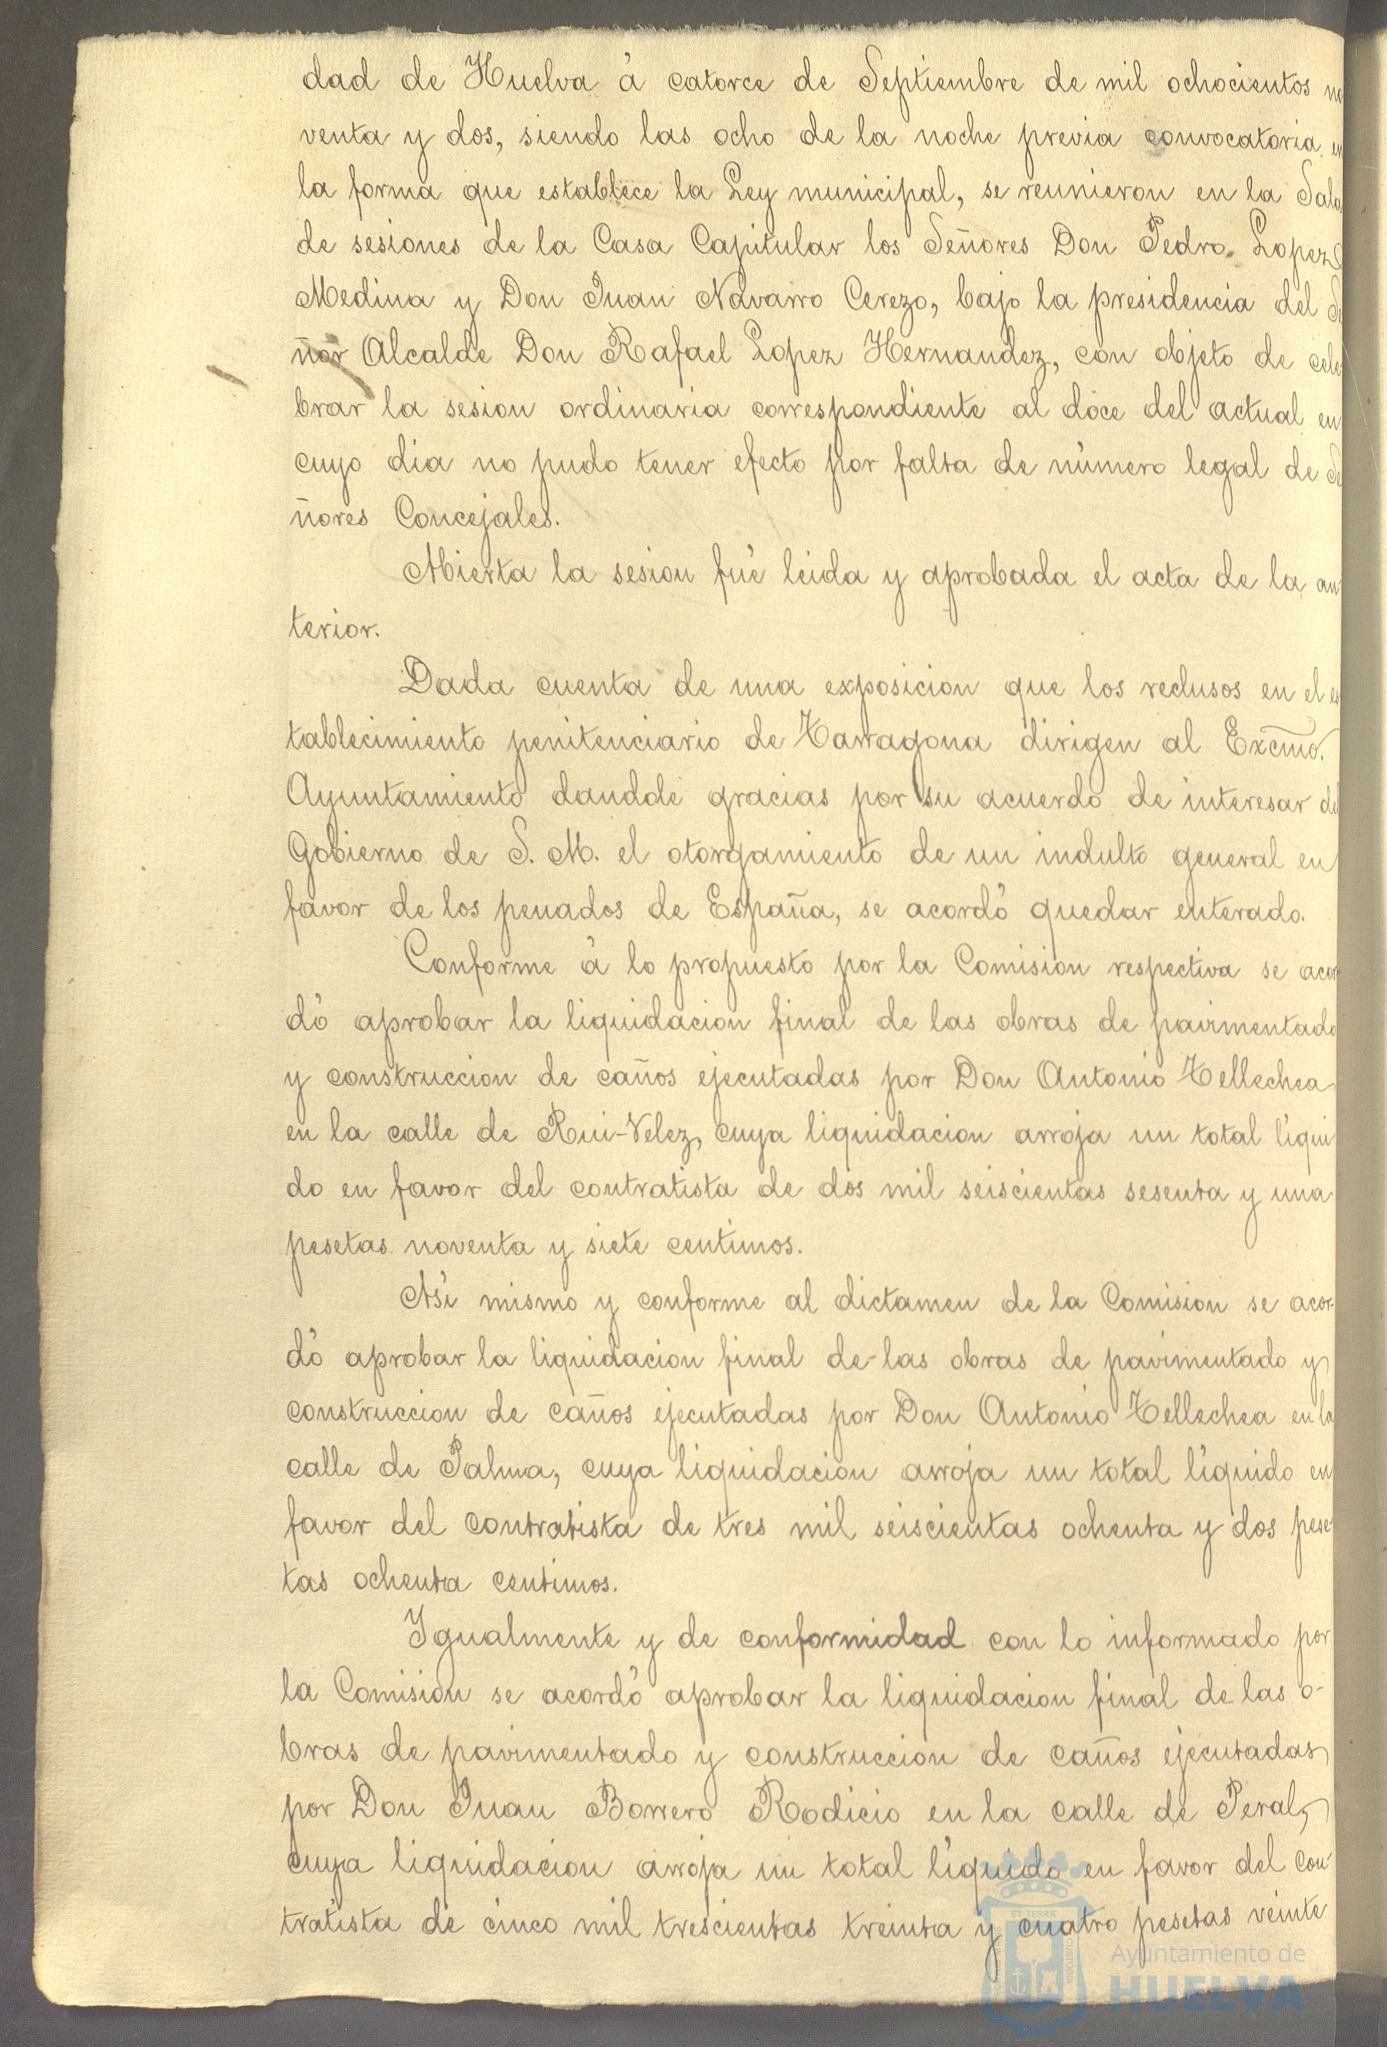 dad de Huelva á catorce de Septiembre de mil ochocientos no
venta y dos, siendo las ocho de la noche previa convocatoria en
la forma que establece la Ley municipal, se reunieron en la Sala
de sesiones de la Casa Capitular los Señores Don Pedro Lopez
Medina y Don Juan Navarro Cerezo, bajo la presidencia del Se
ñor Alcalde Don Rafael Lopez Hernandez, con objeto de cele
brar la sesion ordinaria correspondiente al doce del actual en
cuyo dia no pudo tener efecto por falta de número legal de Se
ñores Concejales.
Abierta la sesion fué leida y aprobada el acta de la an
terior.
Dada cuenta de una exposicion que los reclusos en el es
tablecimiento penitenciario de Tarragona dirigen al Excmo.
Ayuntamiento dandole gracias por su acuerdo de interesar del
Gobierno de S. M. el otorgamiento de un indulto general en
favor de los penados de España, se acordó quedar enterado.
Conforme á lo propuesto por la Comision respectiva se acor
dó aprobar la liquidacion final de las obras de pavimentado
y construccion de caños ejecutadas por Don Antonio Tellechea
en la calle de Rui-Velez, cuya liquidacion arroja un total líqui
do en favor del contratista de dos mil seiscientas sesenta y una
pesetas noventa y siete centimos.
Así mismo y conforme al dictamen de la Comision se acor-
dó aprobar la liquidacion final de las obras de pavimentado y
construccion de caños ejecutadas por Don Antonio Tellechea en la
calle de Palma, cuya liquidacion arroja un total líquido en
favor del contratista de tres mil seiscientas ochenta y dos pese
tas ochenta centimos.
Igualmente y de conformidad con lo informado por
la Comision se acordó aprobar la liquidacion final de las o-
bras de pavimentado y construccion de caños ejecutadas
por Don Juan Borrero Rodicio en la calle de Peral,
cuya liquidacion arroja un total líquido en favor del con-
tratista de cinco mil trescientas treinta y cuatro pesetas veinte
Ayuntamiento de
HUELVA